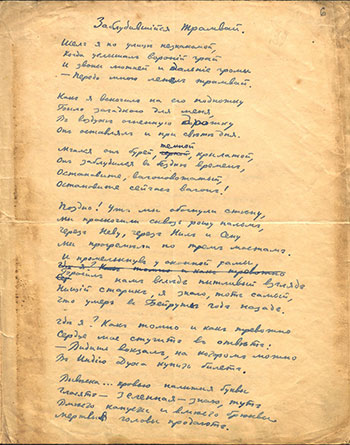 6
Заблудившійся трамвай.
Шелъ я по улицѣ незнакомой,
И вдругъ услышалъ вороній грай
И звоны лютни и дальніе громы
— Передо мною летѣлъ трамвай.
Какъ я вскочилъ на его подножку
Было загадкою для меня.
Въ воздухѣ огненную дорожку
Онъ оставлялъ и при свѣтѣ дня.
Мчался онъ бурей темной, крылатой,
Онъ заблудился въ безднѣ временъ,
Остановите, вагоновожатый,
Остановите сейчасъ вагонъ!
Поздно! Ужъ мы обогнули стѣну,
Мы проскочили сквозь рощу пальмъ,
Черезъ Неву, черезъ Нилъ и Сену
Мы прогремѣли по тремъ мостамъ.
И промелькнувъ у оконной рамы,
Гдѣ я? Какъ томно и какъ тревожно
Бросилъ намъ вслѣдъ пытливый взглядъ
Нищій старикъ, я знаю, тотъ самый,
Что умеръ въ Бейрутѣ годъ назадъ.
Гдѣ я? Какъ томно и какъ тревожно
Сердце мое стучитъ въ отвѣтъ:
— Видишь вокзалъ, на которомъ можно
Въ Индію Духа купить билетъ.
Вывѣска... кровью налитыя буквы
Гласятъ — зеленная — знаю, тутъ
Вмѣсто капусты и вмѣсто брюквы
Мертвыя головы продаютъ.